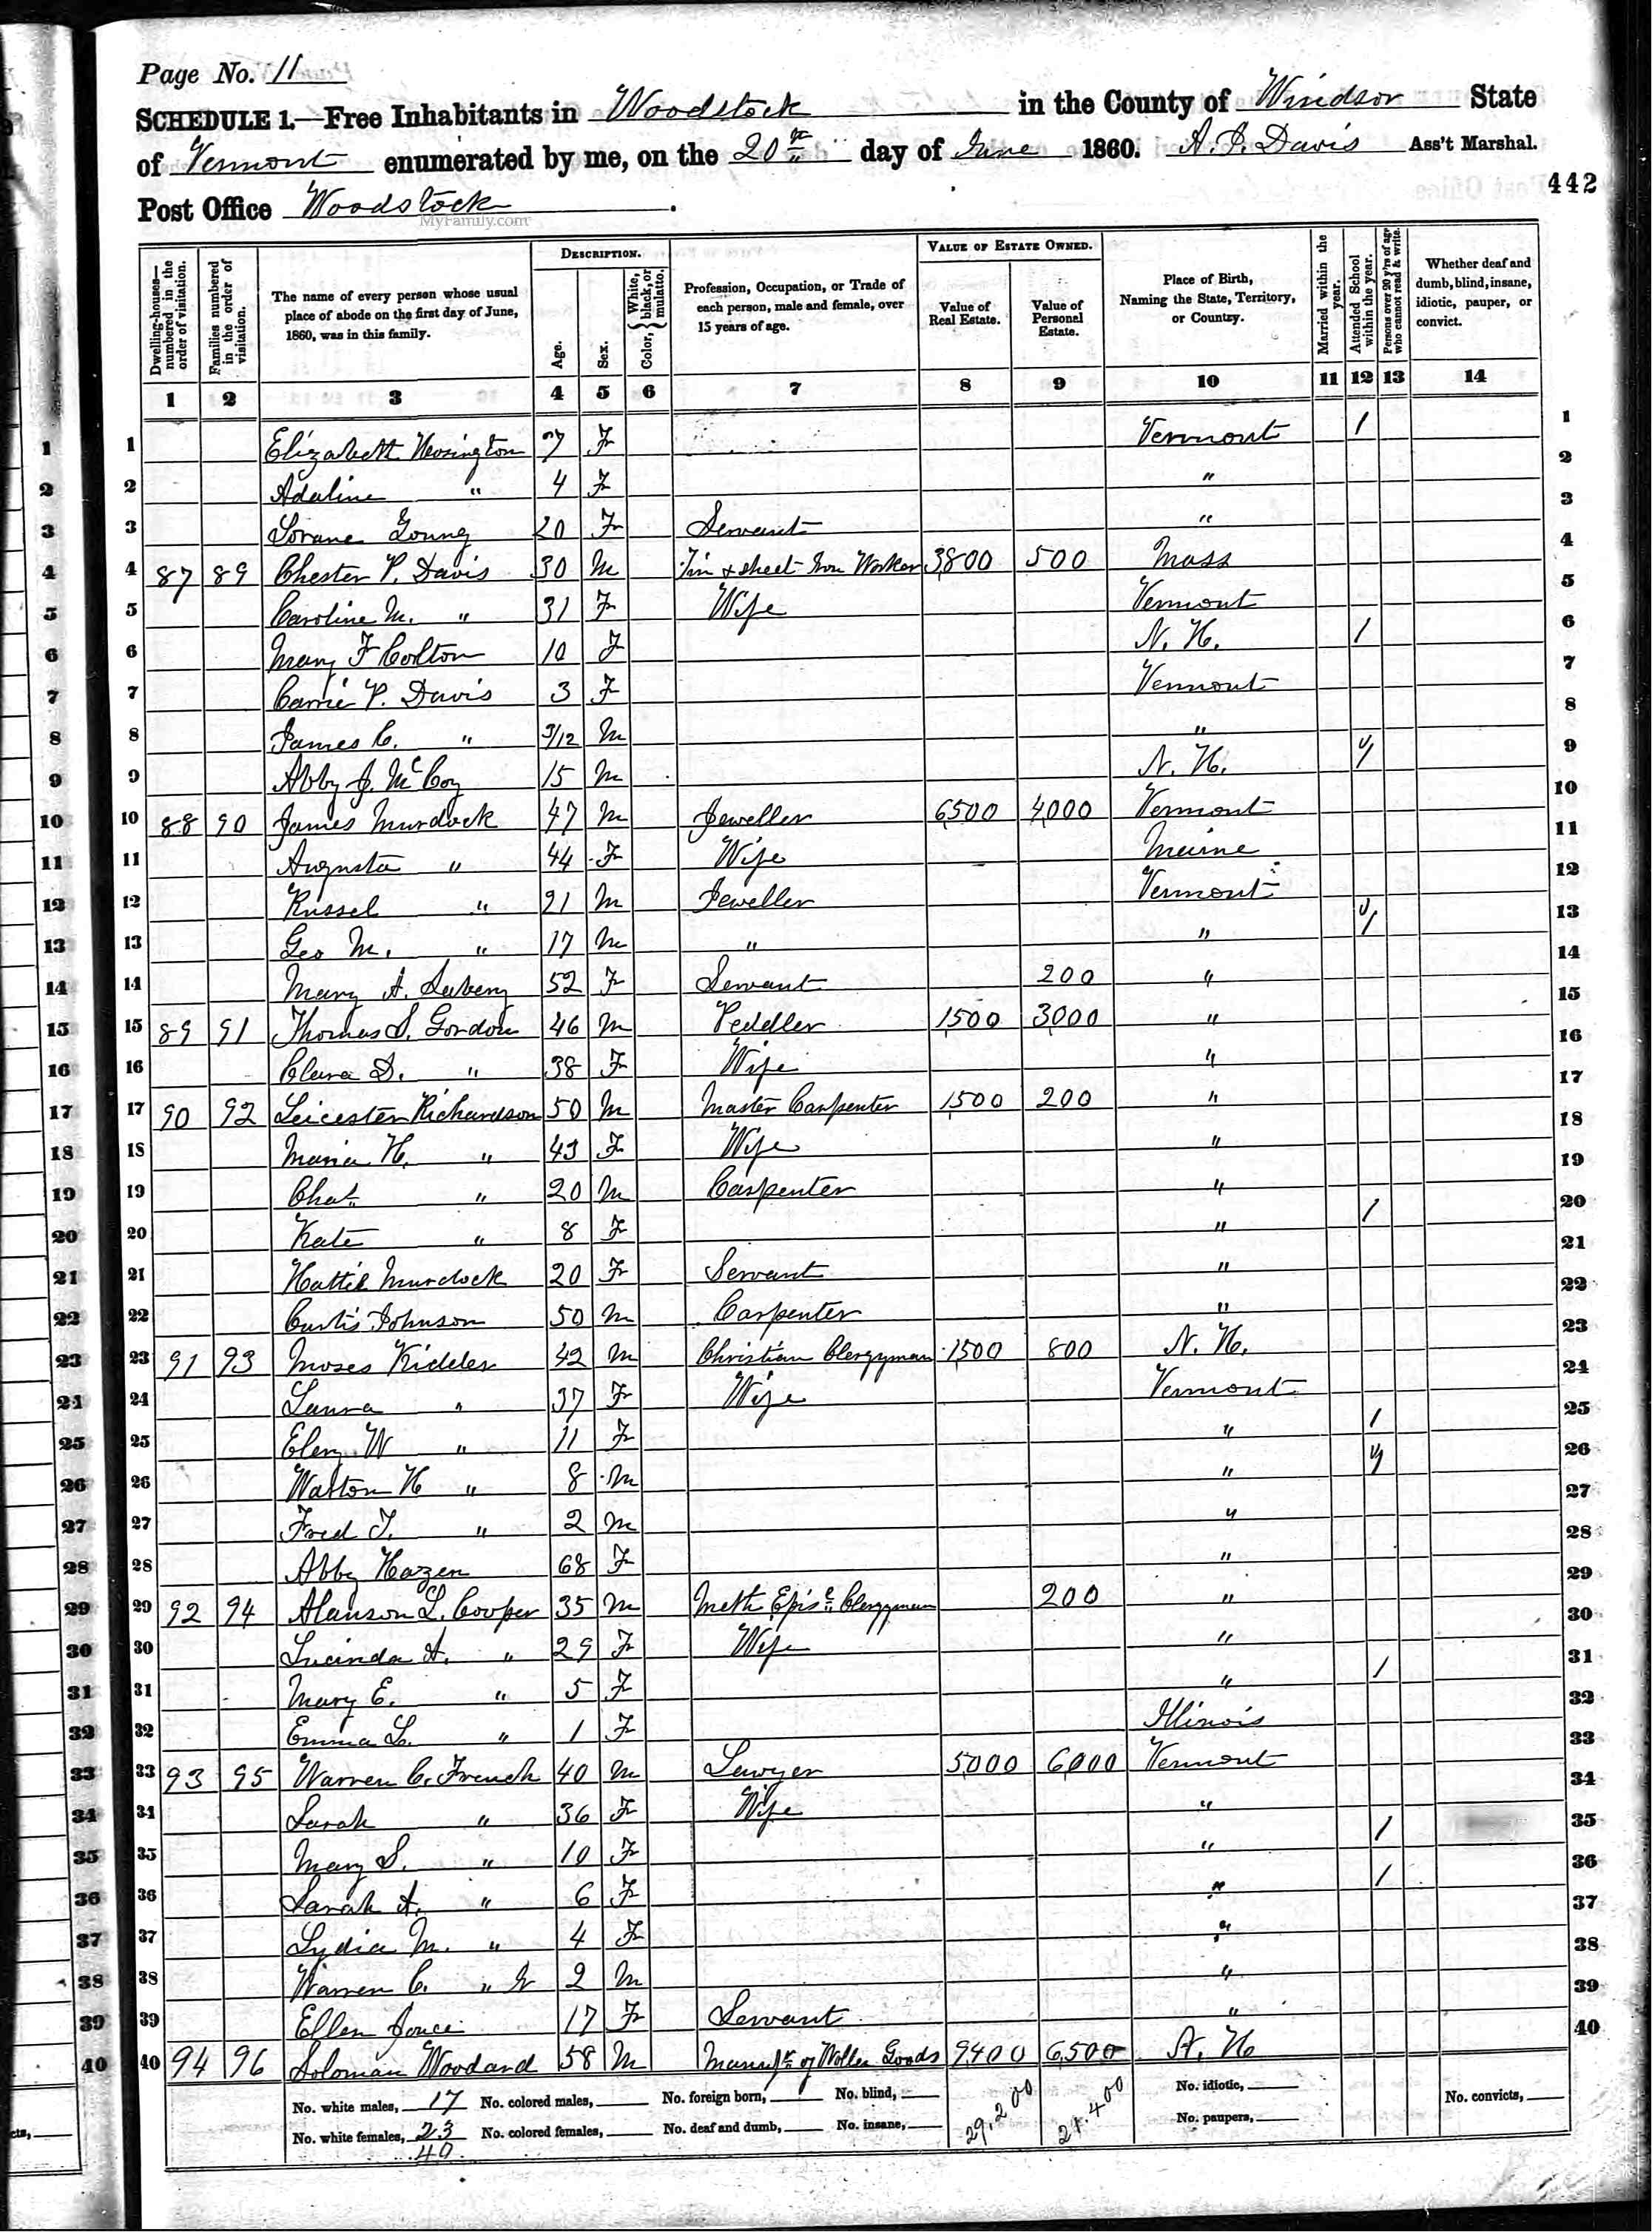 Page No. 11
SCHEDULE 1.—Free Inhabitants in Woodstock in the County of Windsor State
of Vermont enumerated by me, on the 20th day of June 1860. A. P. Davis Ass't Marshal.
442
Post Office Woodstock.
MyFamily.com
Dwelling-houses—numbered in the order of visitation.
Families numbered in the order of visitation.
The name of every person whose usual place of abode on the first day of June, 1860, was in this family.
DESCRIPTION.
Age.
Sex.
Color, { White, black, or mulatto.
Profession, Occupation, or Trade of each person, male and female, over 15 years of age.
VALUE OF ESTATE OWNED.
Value of Real Estate.
Value of Personal Estate.
Place of Birth, Naming the State, Territory, or Country.
Married within the year.
Attended School within the year.
Persons over 20 y'rs of age who cannot read & write.
Whether deaf and dumb, blind, insane, idiotic, pauper, or convict.
1 2 3 4 5 6 7 8 9 10 11 12 13 14
1 Elizabeth 7 F Vermont / 1
2 Adaline " 4 F " 2
3 Lorane Young 20 F Servant " 3
4 87 89 Chester P. Davis 30 M Tin & sheet Iron Worker 3800 500 Mass 4
5 Caroline M. " 31 F Wife Vermont 5
6 Mary F Colton 10 F N. H. / 6
7 Carrie P. Davis 3 F Vermont 7
8 James C. " 3/12 M " 8
9 Abby J. McCoy 15 M N. H. / 9
10 88 90 James Murdock 47 M Jeweller 6500 4000 Vermont 10
11 Augusta " 44 F Wife Maine 11
12 Russel " 21 M Jeweller Vermont 12
13 Geo M. " 17 M " " / 13
14 Mary A. 52 F Servant 200 " 14
15 89 91 Thomas S. Gordon 46 M Peddler 1500 3000 " 15
16 Clara D. " 38 F Wife " 16
17 90 92 Leicester Richardson 50 M Master Carpenter 1500 200 " 17
18 Maria H. " 43 F Wife " 18
19 Chas. " 20 M Carpenter " 19
20 Kate " 8 F " / 20
21 Hattie Murdock 20 F Servant " 21
22 Curtis Johnson 50 M Carpenter " 22
23 91 93 Moses Kidder 42 M Christian Clergyman 1500 800 N. H. 23
24 Laura " 37 F Wife Vermont 24
25 W " 11 F " / 25
26 Walton H " 8 M " / 26
27 Fred J. " 2 M " 27
28 Abby Hazen 68 F " 28
29 92 94 Alanson L. Cooper 35 M Meth Episc Clergyman 200 " 29
30 Lucinda A. " 29 F Wife " 30
31 Mary E. " 5 F " / 31
32 Emma L. " 1 F Illinois 32
33 93 95 Warren C. French 40 M Lawyer 5000 6000 Vermont 33
34 Sarah " 36 F Wife " 34
35 Mary S. " 10 F " / 35
36 Sarah A. " 6 F " / 36
37 Lydia M. " 4 F " 37
38 Warren C. " Jr 2 M " 38
39 Ellen 17 F Servant " 39
40 94 96 Soloman Woodard 58 M Manufr of Wollen Goods 9400 6500 N. H 40
No. white males, 17 No. colored males, No. foreign born, No. blind, 29,200 24,400 No. idiotic, No. convicts,
No. white females, 23 No. colored females, No. deaf and dumb, No. insane, No. paupers,
40